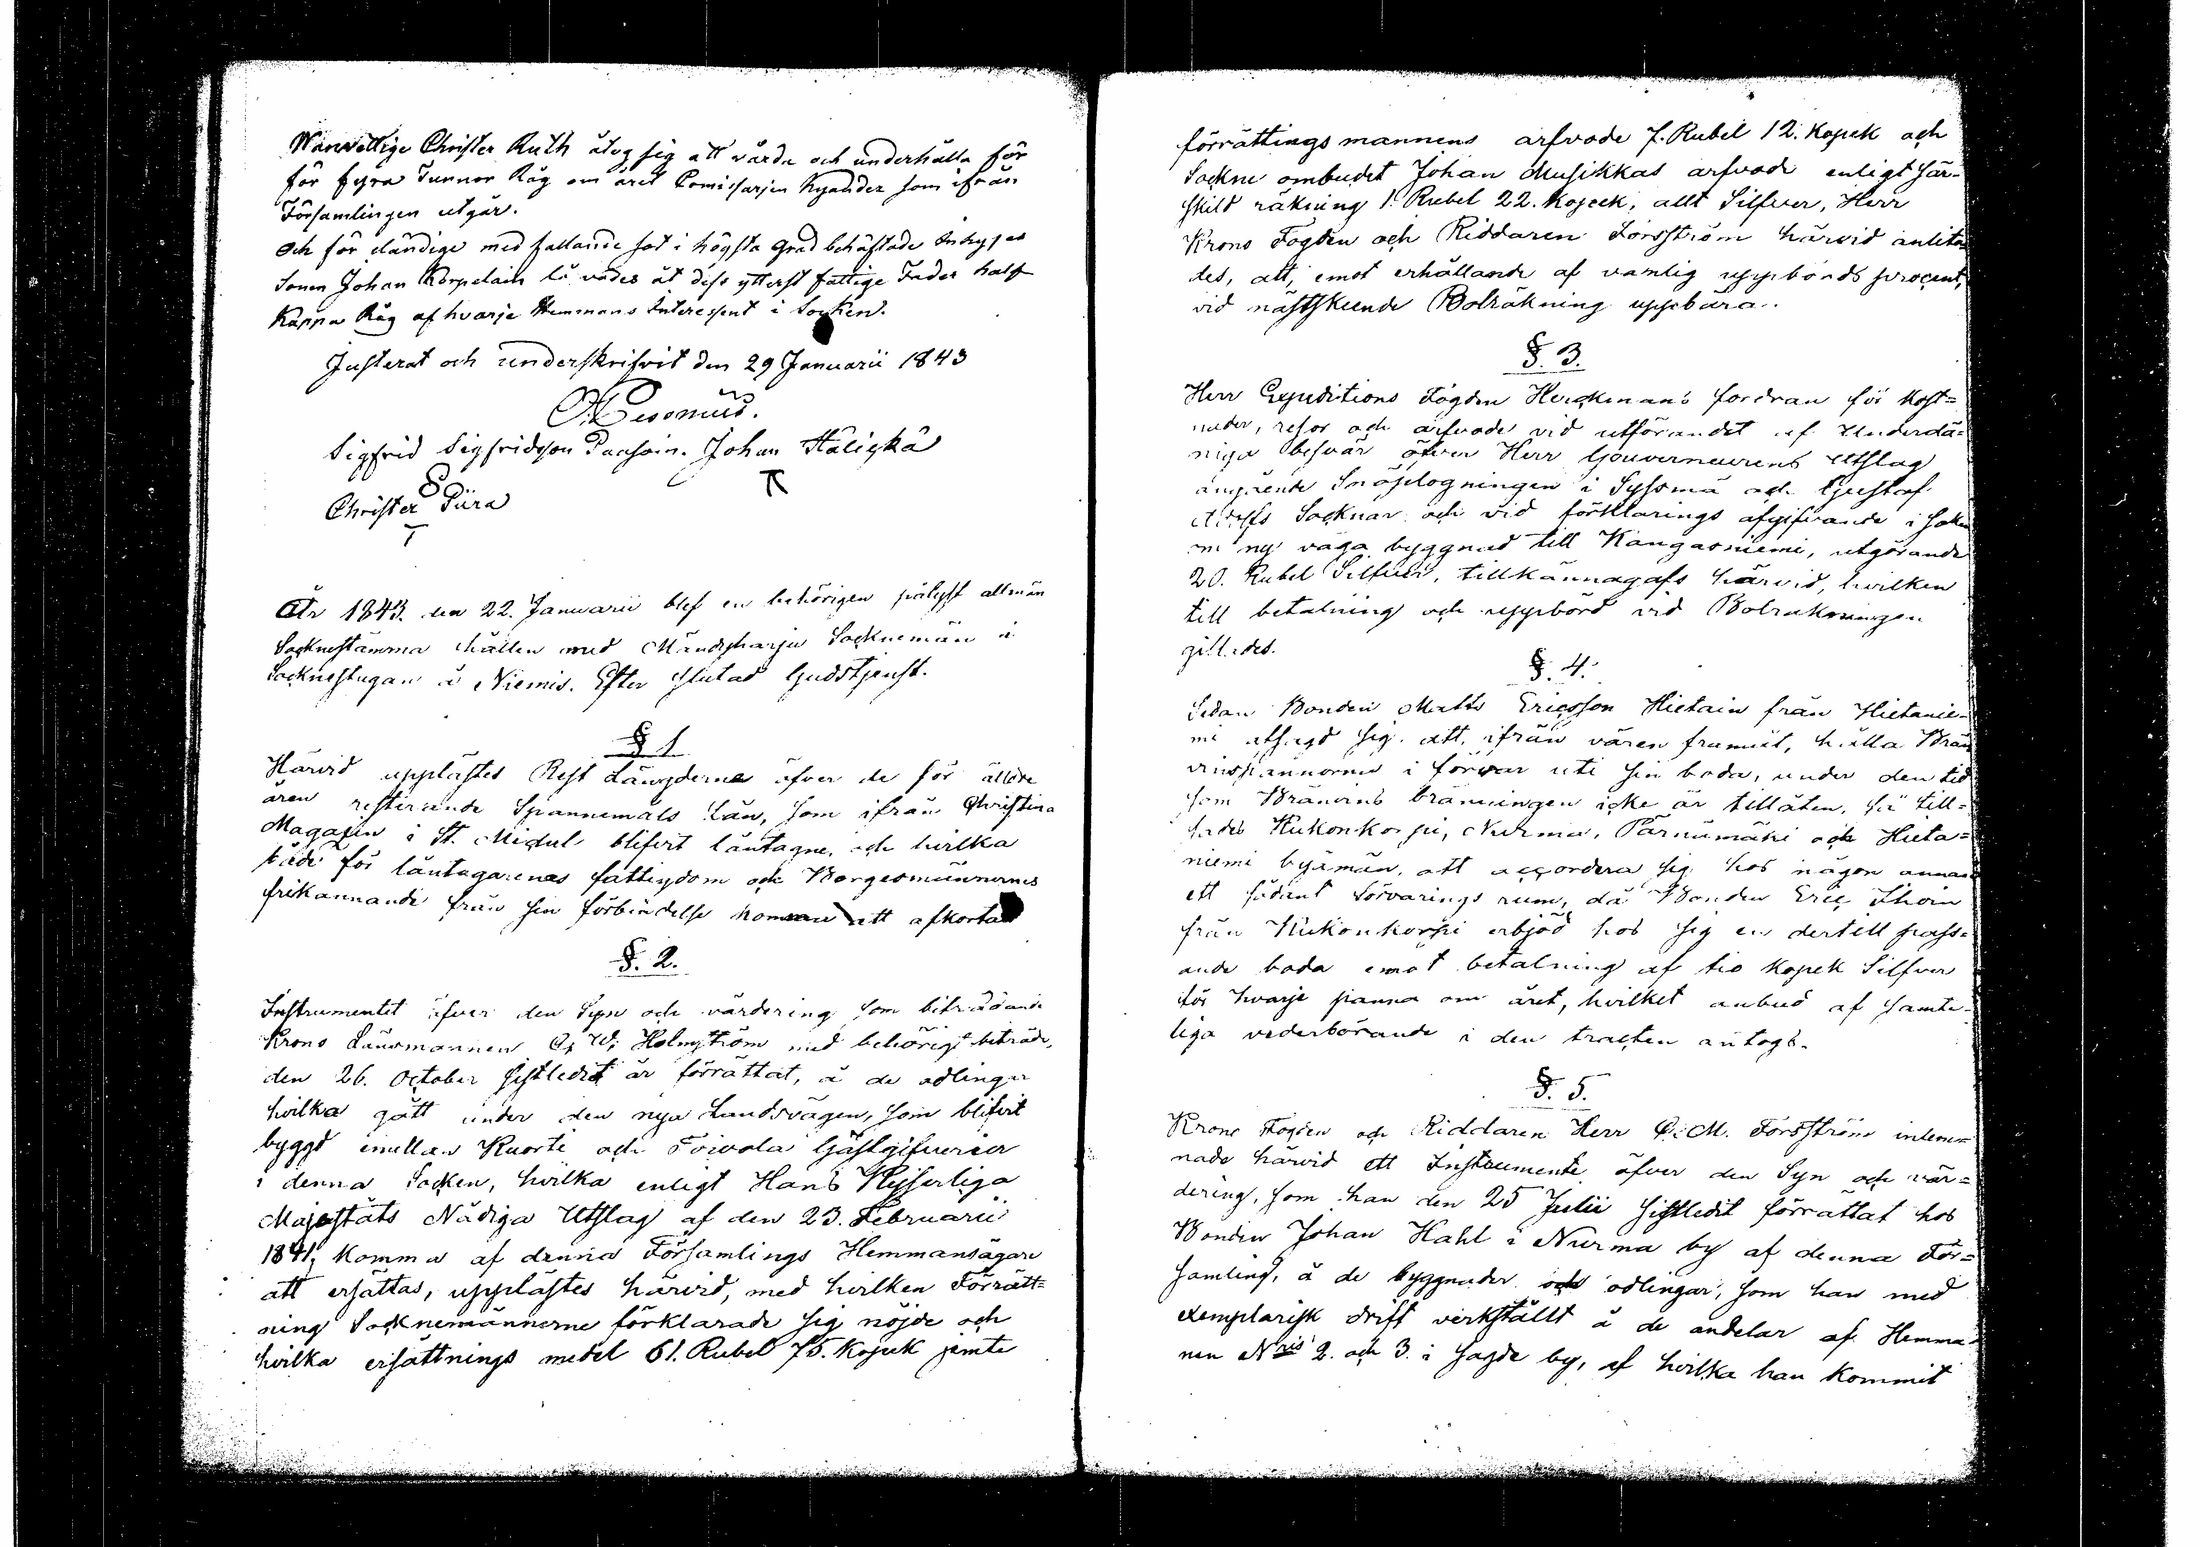 Wanvettige Christer Ruth åtog sig att vårda och underhålla för
för fyra Tunnor Råg om året Comissarjen Kyander som ifrån
Församlingen utgår.
Och för eländige med fallande sot i högsta grad behäftade Inhyses
Sonen Johan Korpelain lå vades åt dess ytterst fattige Fader half
Kappa Råg af hvarje Hemmans Interessent i Socken.
Justerat och underskrifvit den 29 Januarii 1843
Sigfrid Sigfridsson Paasoin. Johan Häligkä
Christer Pura
År 1843. den 22. Januarii blef en behörigen pålyst allmän
Socknestämma hållen med Mändyharju Socknemän i
Socknestugan å Niemis. Efter slutad Gudstjenst.
§ 1
Härvid upplästes Rest Längderne öfver de för äldre
åren resterande Spannemåls Lån, som ifrån Christina
Magazin i St. Michel blifvit låntagne, och hvilka
både för låntagarenas fattigdom och Borgesmännernes
frikannande från sin förbindelse komma att afkortas
§. 2.
Instrumentet öfver den Syn och värdering som biträdande
Krono Länsmannen C. W. Holmström med behörigt biträde,
den 26. October sistledit är förrättat, å de odlingar
hvilka gått under den nya Landsvägen, som blifvit
byggd emellan Kuorti och Toivola Gästgifverier
i denna Socken, hvilka enligt Hans Kejserliga
Majestäts Nådiga Utslag af den 23. Februarii
1841, komma af denna Församlings Hemmansägare
att ersättas, upplästes härvid, med hvilken Förrätt=
ning Socknemännerne förklarade sig nöjde och
hvilka ersättnings medel 61. Rubel 75. Kopek jemte
förrättingsmannens arfvode 7. Rubel 12. Kopek och
Sockne ombudet Johan Musikkas arfvode enligt sär=
skild räkning 1. Rubel 22. Kopeek, allt Silfver, Herr
Krono Fogden och Riddaren Forsström härvid anlita
des, att, emot erhållande af vanlig uppbörds procent,
vid nästskeende Bolräkning uppbära.
§. 3.
Herr Expeditions Fogden Herckmans fordran för kost=
nader, resor och arfvode vid utförandet af Underdå=
niga besvär öfver Herr Gouverneurens Utslag
angående Snöplogningen i Sysmä och Gustaf
Adolfs Socknar och vid förklarings afgifvande i saken
om ny väga byggnad till Kangasniemi, utgörande
20. Rubel Silfver, tillkännagafs härvid, hvilken
till betalning och uppbörd vid Bolräkningen
gillades.
§. 4.
Sedan Bonden Matts Ericsson Hietain från Hietanie=
mi afsagd sig att, ifrån våren framåt, hålla Brän
vinspannorne i förvar uti sin boda, under den tid
som Bränvins bränningen icke är tillåten, så till=
sades Kukonkorpi, Nurmaa, Pärnämäki och Hieta=
niemi byamän, att accordera sig hos någon annan
ett sådant förvarings rum, då Bonden Eric Ihoin
från Kukonkorpi erbjöd hos sig en dertill pass=
ande boda emot betalning af tio kopek Silfver
för hvarje panna om året, hvilket anbud af samte=
liga vederbörande i den tracten antogs.
§. 5.
Krono Fogden och Riddaren Herr C. M. Forsström inlem=
nade härvid ett Instrumente öfver den Syn och vär=
dering, som han den 25 Julii sistledit förrättat hos
Bonden Johan Hahl i Nurma by af denna För=
samling, å de byggnader och odlingar, som han med
exemplarisk drift verkställt å de andelar af Hemma=
nen Nris 2. och 3. i sagde by, af hvilka han kommit